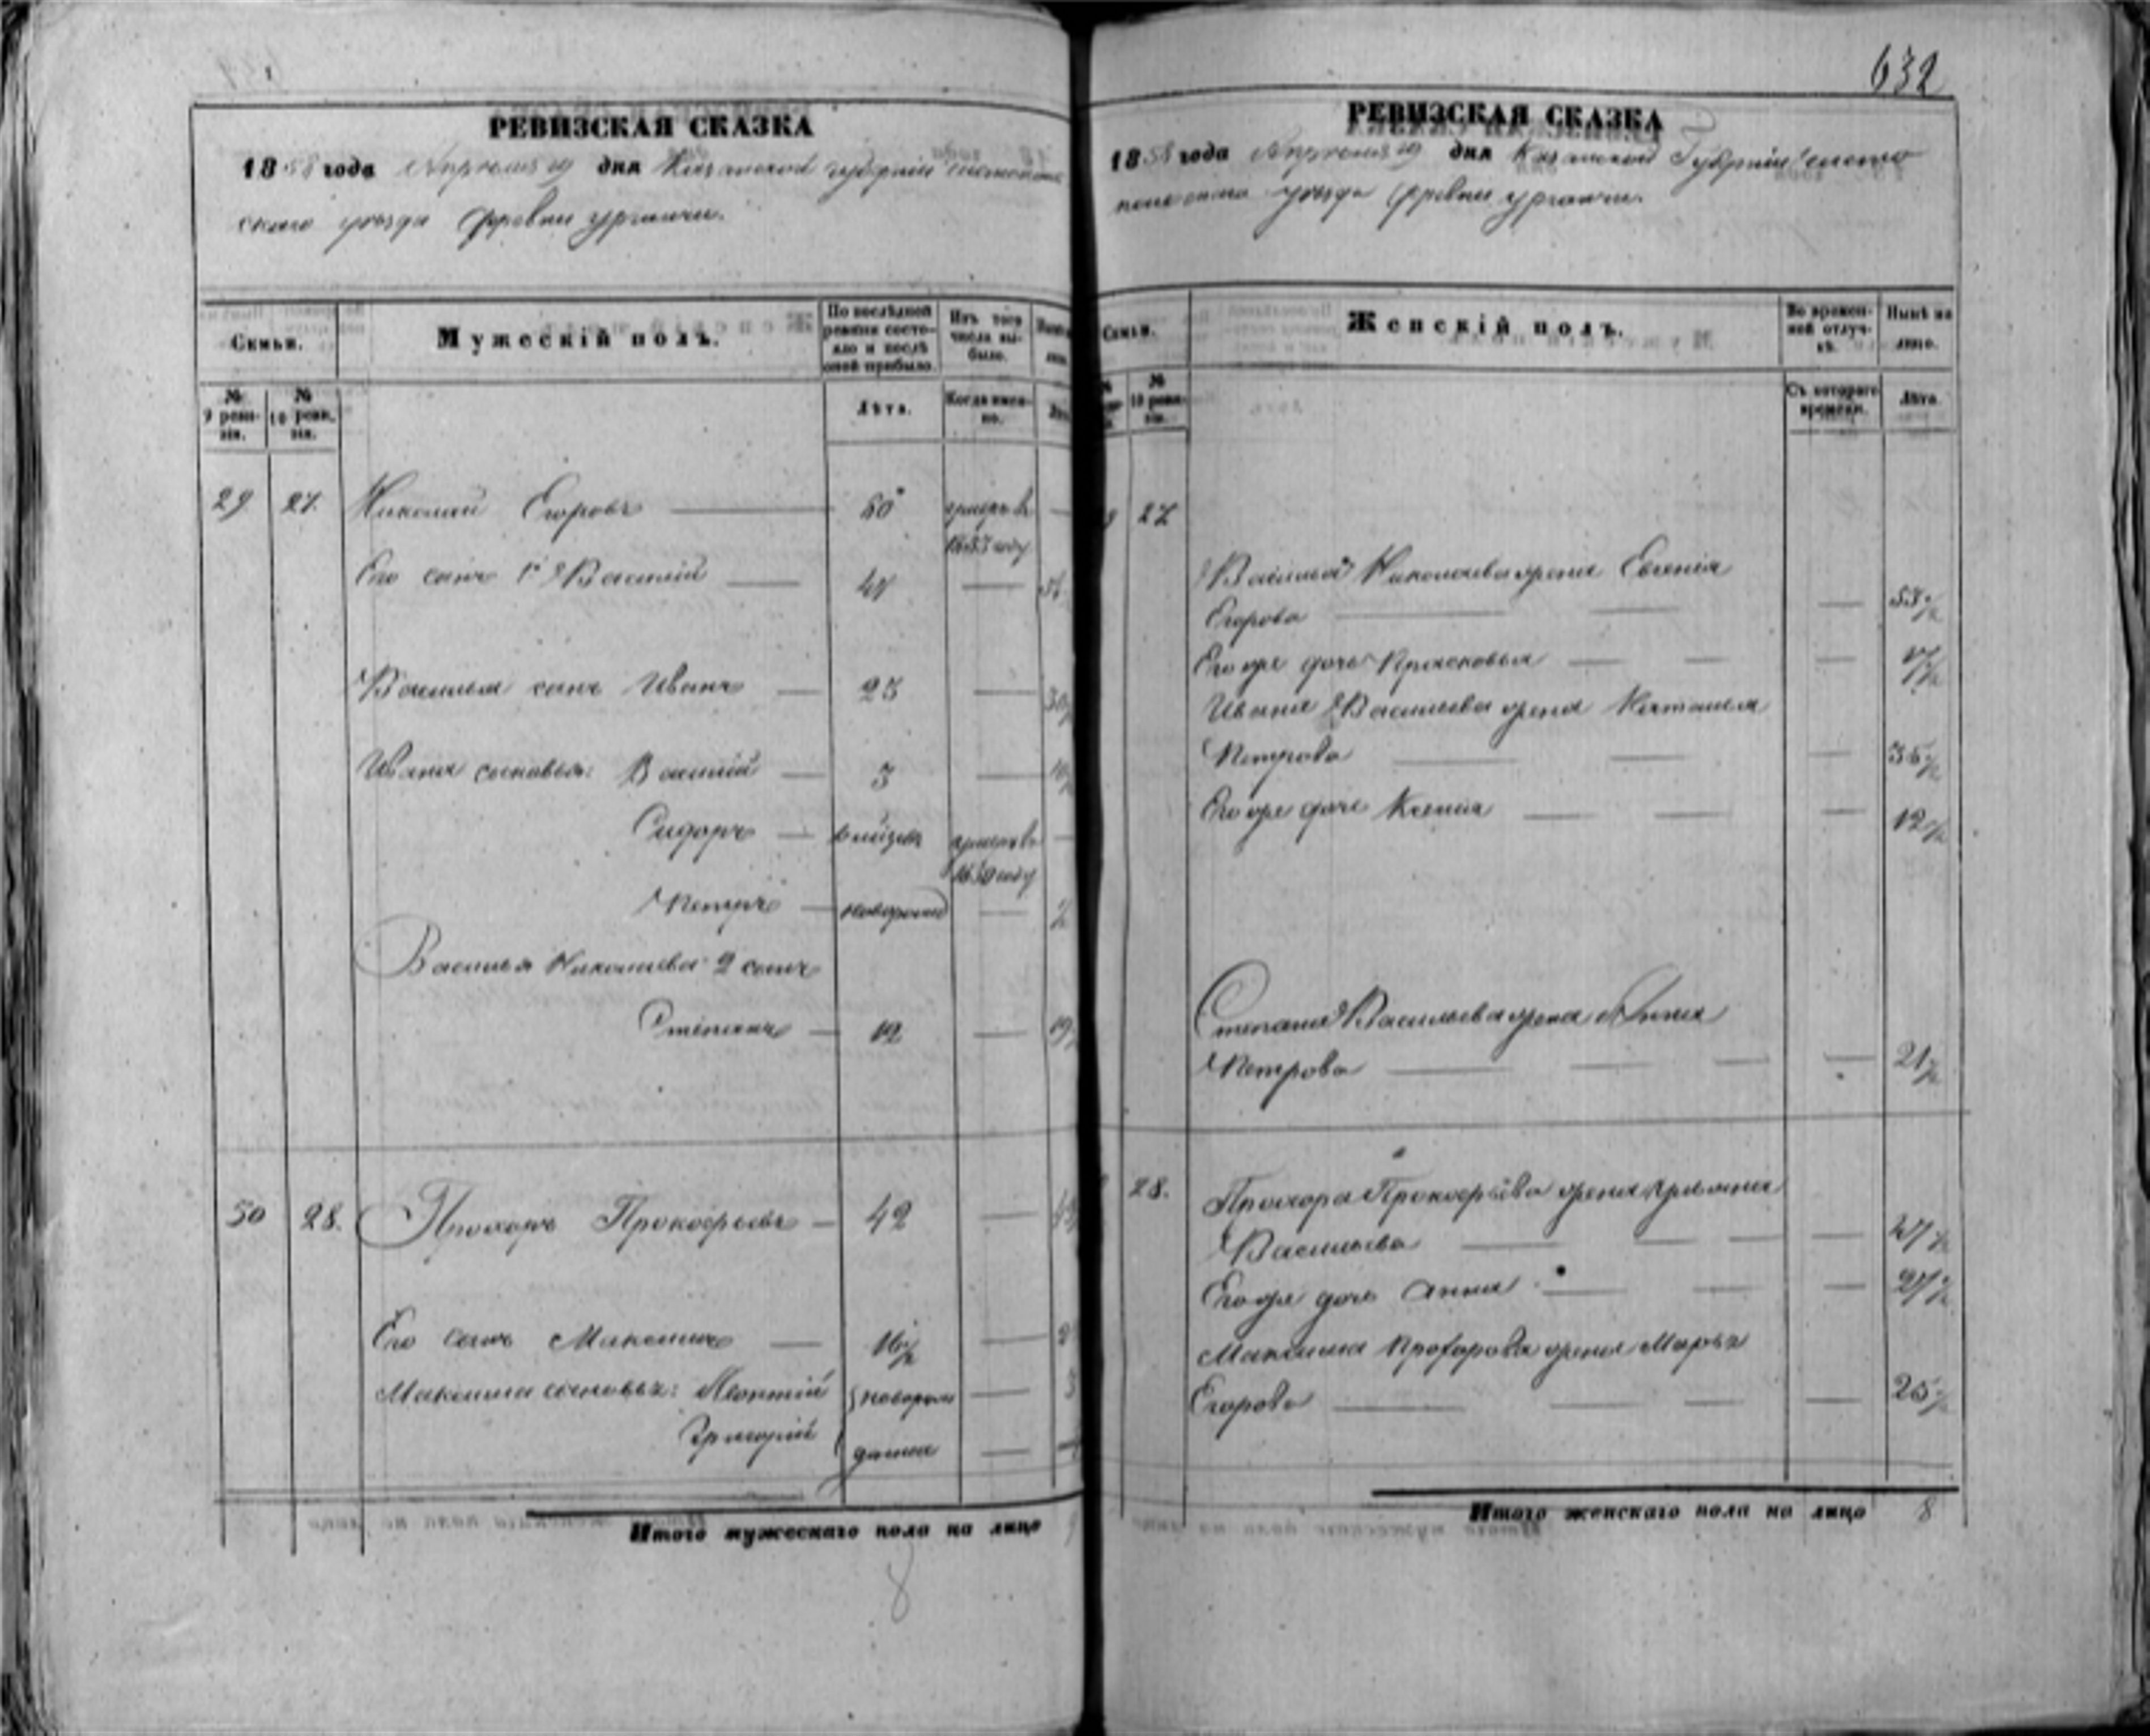 632
РЕВИЗСКАЯ СКАЗКА
1858 года Апреля 19 дня Казанской губернии Чистополь
скаго уезда Деревни
Семьи.
Мужескій полъ.
По послѣдней ревизіи состояло и послѣ оной прибыло.
Изъ того числа выбыло.
№ 9 ревизіи.
№ 10 ревизіи.
Лѣта.
Когда именно.
29 27. Николай Егоровъ 60 умеръ въ
1853 году
Его сынъ 1й Василій
Василья сынъ Иванъ 23
Ивана сыновья: Василій 3
Сидоръ
1850 году
Петръ новорожд
Василья Николаева 2 сынъ
Степанъ 12
50 28. Прохоръ Прокофьевъ 42
Его сынъ Максимъ 16½
Максима сыновья: Леонтій новорож
Григорій дѣнна
Итого мужескаго пола на лицо
8
РЕВИЗСКАЯ СКАЗКА
1858 года Апреля 19 дня Казанской Губерніи Чисто
польскаго уезда Деревни
Семьи.
Женскій полъ.
Во временной отлучкѣ.
Нынѣ на лицо.
№ 10 ревизіи.
Съ котораго времени.
Лѣта.
27
Василья Николаева жена Евгенія
Егорова 53½
Его же дочь Прасковья
Ивана Васильева жена Наталья
Петрова 35½
Его же дочь Ксенія 12½
Степана Васильева жена Анна
Петрова 21½
28. Прохора Прокофьева жена Ульяна
Васильева 47½
Его же дочь Анна
Максима Прохорова жена Марья
Егорова 25½
Итого женскаго пола на лицо 8